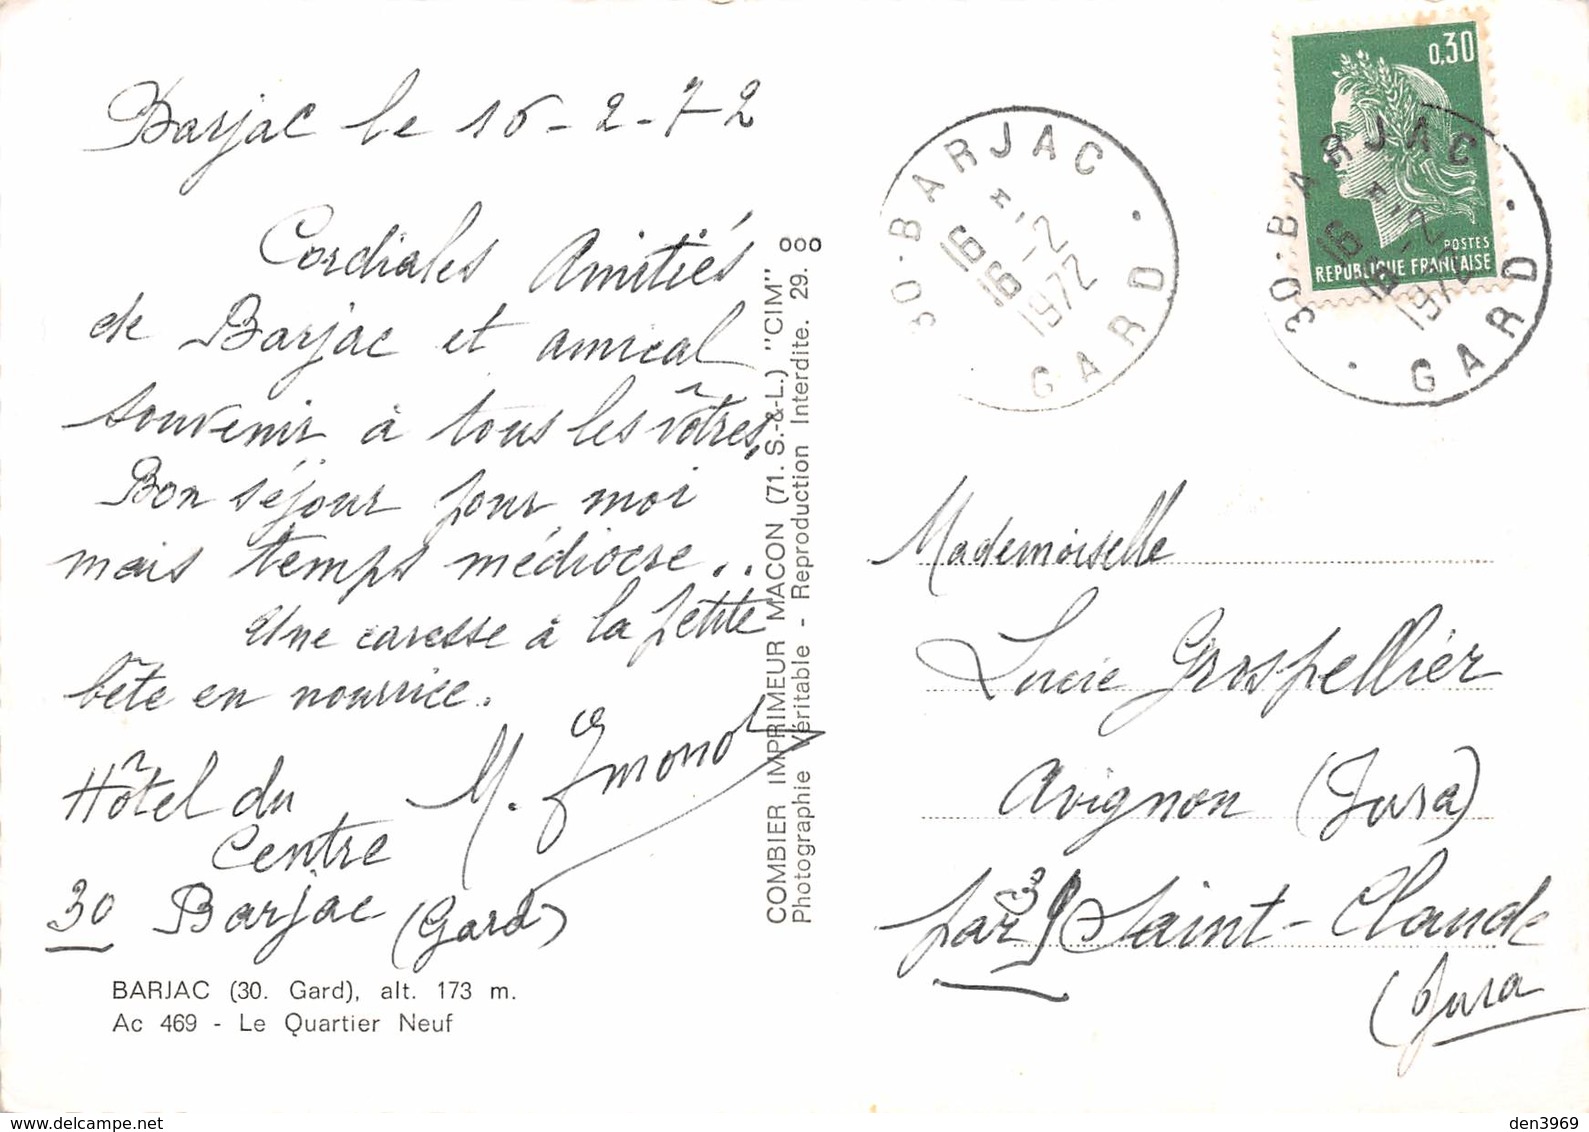 Barjac le 16-2-72
Cordiales Amitiés
de Barjac et amical
souvenir à tous les vôtres,
Bon séjour pour moi
mais temps médiocre..
Une caresse à la petite
bête en nourrice.
Hôtel du
Centre
30 Barjac (Gard)
BARJAC (30. Gard), alt. 173 m.
Ac 469 - Le Quartier Neuf
COMBIER IMPRIMEUR MACON (71. S.-&-L.) "CIM"
Photographie Véritable - Reproduction Interdite. 29.
ooo
30-BARJAC
16 H
16-2
1972
GARD
0,30
POSTES
REPUBLIQUE FRANÇAISE
30-BARJAC
16 H
16-2
1972
GARD
Mademoiselle
Lucie Grospellier
Avignon (Jura)
par 39 Saint-Claude
(Jura
den3969